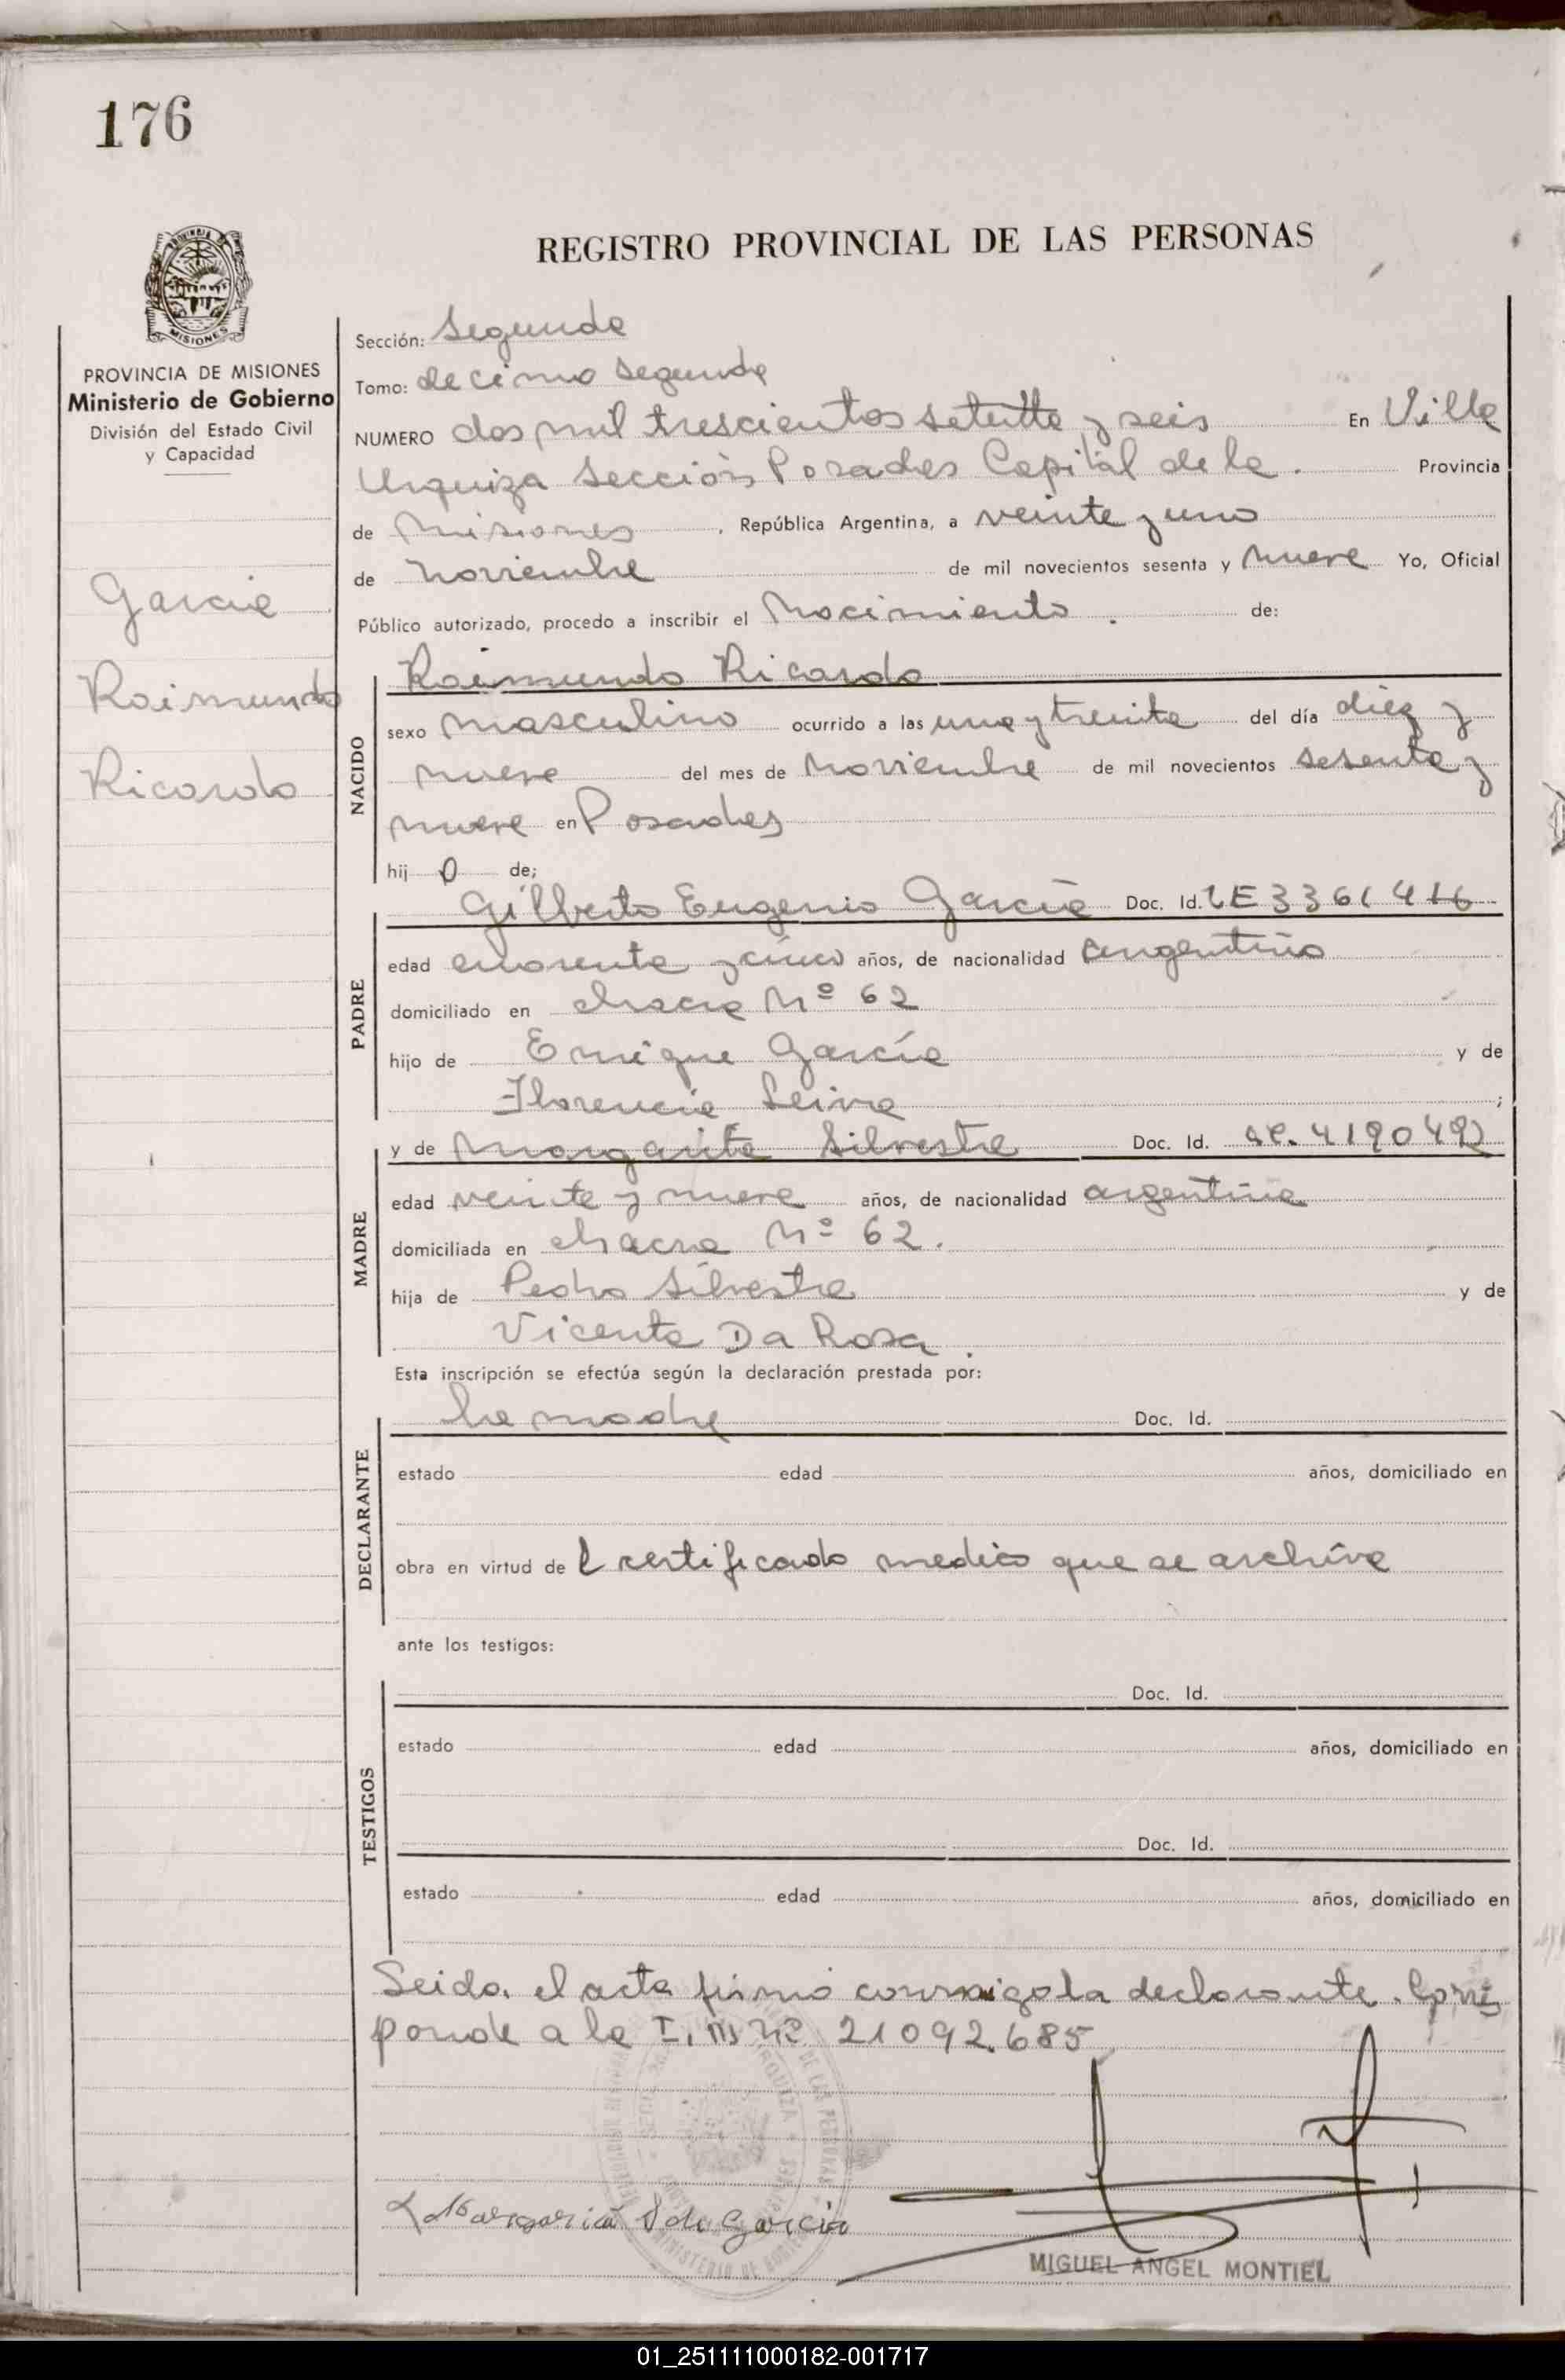 176
REGISTRO PROVINCIAL DE LAS PERSONAS
PROVINCIA DE MISIONES
Ministerio de Gobierno
División del Estado Civil
y Capacidad
Garcia
Raimundo
Ricardo
Sección: Segunda
Tomo: decimo segundo
NUMERO dos mil trescientos setenta y seis En Villa
Urquiza Sección Posadas Capital de la Provincia
de Misiones, República Argentina, a veinte y uno
de noviembre de mil novecientos sesenta y nueve Yo, Oficial
Público autorizado, procedo a inscribir el Nacimiento de:
NACIDO
Raimundo Ricardo
sexo masculino ocurrido a las una y treinta del día diez y
nueve del mes de Noviembre de mil novecientos sesenta y
nueve en Posadas
hij o de;
PADRE
Gilberto Eugenio García Doc. Id. LE 3361416
edad cuarenta y cinco años, de nacionalidad argentino
domiciliado en chacra Nº 62
hijo de Enrique García y de
Florencia Leiva;
MADRE
y de Margarita Silvestre Doc. Id. 4190492
edad veinte y nueve años, de nacionalidad argentina
domiciliada en chacra Nº 62.
hija de Pedro Silvestre y de
Vicenta Da Rosa.
Esta inscripción se efectúa según la declaración prestada por:
DECLARANTE
La madre Doc. Id.
estado edad años, domiciliado en
obra en virtud de l certificado medico que se archiva
ante los testigos:
TESTIGOS
Doc. Id.
estado edad años, domiciliado en
Doc. Id.
estado edad años, domiciliado en
Leida el acta firmó conmigo la declarante. Corres
ponde a la 21092.685
Margarita S de Garcia
MIGUEL ANGEL MONTIEL
01_251111000182-001717